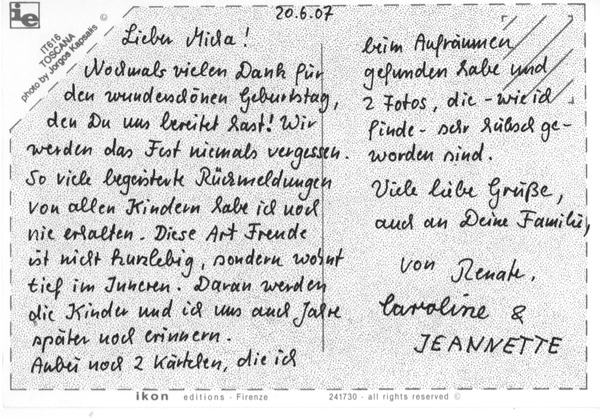 20.6.07
ie
IT616
TOSCANA
photo by Jorgos Kapsalis ©
Lieber Micha!
Nochmals vielen Dank für
den wunderschönen Geburtstag,
den Du uns bereitet hast! Wir
werden das Fest niemals vergessen.
So viele begeisterte Rückmeldungen
von allen Kindern habe ich noch
nie erhalten. Diese Art Freude
ist nicht kurzlebig, sondern wohnt
tief im Inneren. Daran werden
die Kinder und ich uns auch Jahre
später noch erinnern.
Anbei noch 2 Kärtchen, die ich
beim Aufräumen
gefunden habe und
2 Fotos, die - wie ich
finde - sehr hübsch ge-
worden sind.
Viele liebe Grüße,
auch an Deine Familie,
von Renate,
Caroline &
JEANNETTE
ikon editions - Firenze
241730 - all rights reserved ©